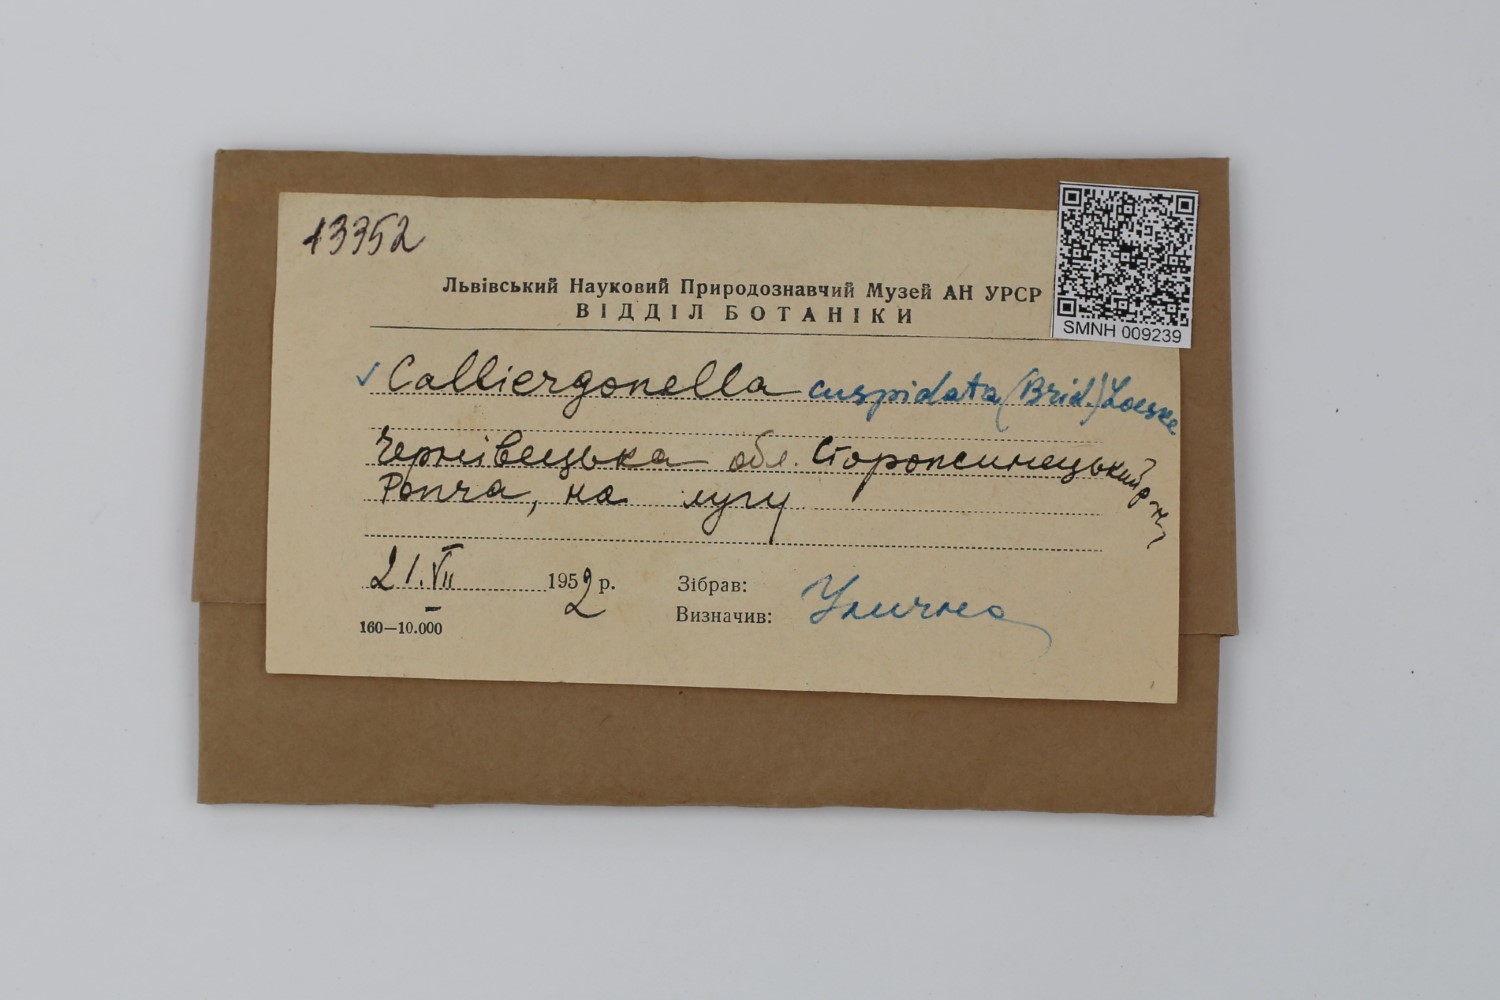 13352
Львівський Науковий Природознавчий Музей АН УРСР
ВІДДІЛ БОТАНІКИ
SMNH 009239
✓ Calliergonella cuspidata (Brid.) Loeske
Чернівецька обл. Сторожинецький р-н,
Ропча, на лугу
21.VII 1952 р.
Зібрав:
Визначив: Улична
160—10.000